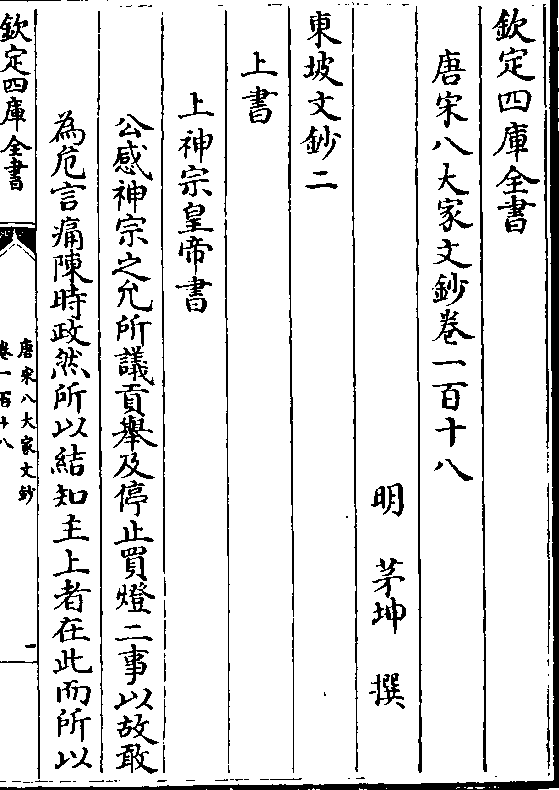 欽定四庫全書
唐宋八大家文鈔卷一百十八
明 茅坤 撰
東坡文鈔二
上書
上神宗皇帝書
公感神宗之允所議貢舉及停止買燈二事以故敢
為危言痛陳時政然所以結知主上者在此而所以
欽定四庫全書
唐宋八大家文鈔
卷一百十八
一